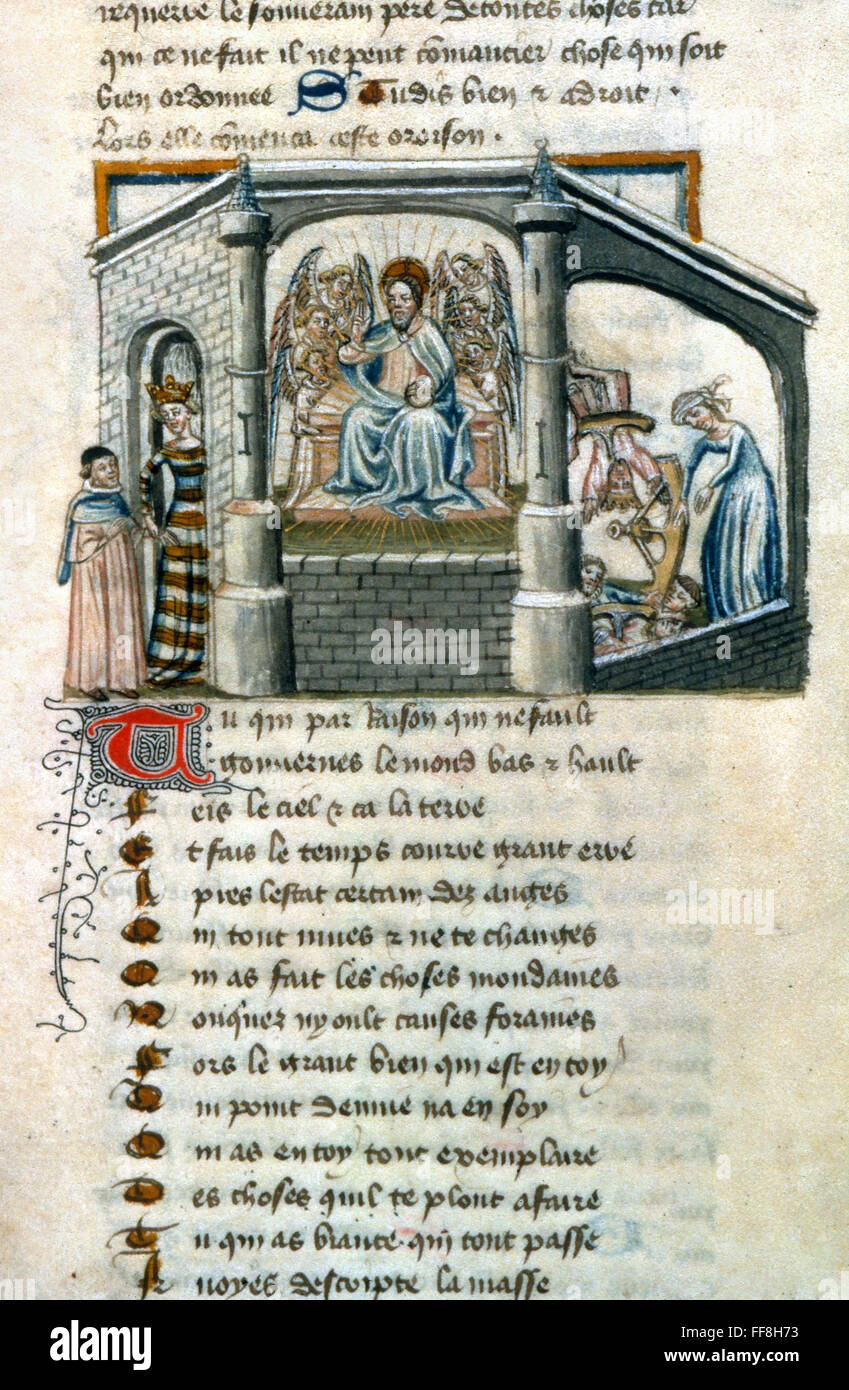 requerre le souverain pere de toutes choses car
qui ce ne fait il ne peut comancier chose qui soit
bien ordonnee Tu dis bien & adroit .
Lors elle comenca ceste oroison .
Tu qui par Raison qui ne fault
gouuernes le mond bas & hault
Feis le ciel & ca la terre
Et fais le temps courre grant erre
Apres lestat certain dez anges
Qui tout mues & ne te changes
Qui as fait les choses mondaines
Fors le grant bien qui est en toy
Qui as en toy tout exemplaire
Des choses quil te plout a faire
Tu qui as biaute qui tout passe
alamy
alamy
alamy
alamy
Image ID: FF8H73
www.alamy.com